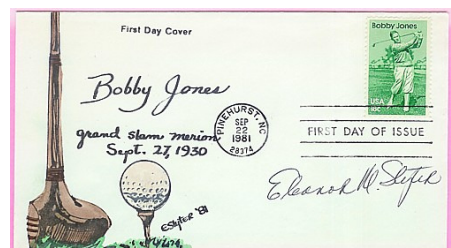 First Day Cover
Bobby Jones
USA
Bobby Jones
grand slam merion
Sept. 27, 1930
PINEHURST, NC
SEP
22
1981
28374
FIRST DAY OF ISSUE
Eleanor M
ESlyter '81